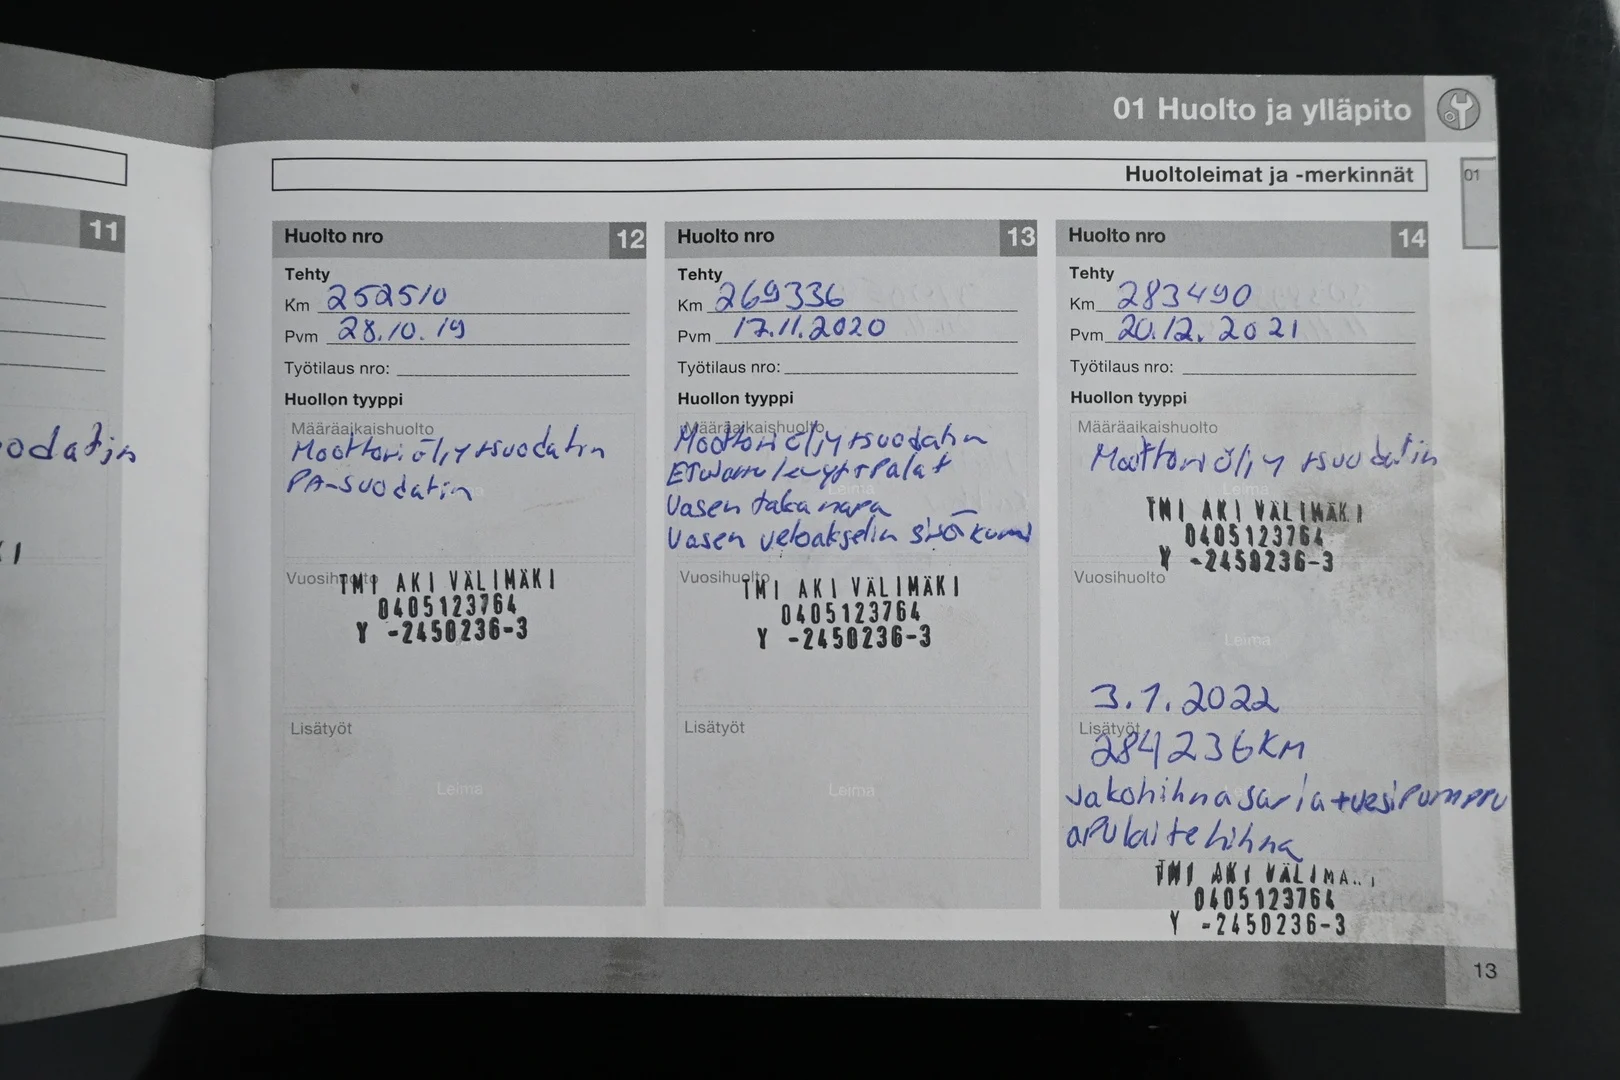 01 Huolto ja ylläpito
Huoltoleimat ja -merkinnät
01
11
odatin
Huolto nro 12
Tehty
Km 252510
Pvm 28.10.19
Työtilaus nro:
Huollon tyyppi
Määräaikaishuolto
Moottoriöljy+suodatin
PA-suodatin
Vuosihuolto
TMI AKI VÄLIMÄKI
0405123764
Y -2450236-3
Lisätyöt
Leima
Huolto nro 13
Tehty
Km 269336
Pvm 17.11.2020
Työtilaus nro:
Huollon tyyppi
Määräaikaishuolto
Moottoriöljy+suodatin
Etujarrulevyt+Palat
Leima
Vasen taka napa
Vasen vetoakselin sisäkumi
Vuosihuolto
TMI AKI VÄLIMÄKI
0405123764
Y -2450236-3
Lisätyöt
Leima
Huolto nro 14
Tehty
Km 283490
Pvm 20.12.2021
Työtilaus nro:
Huollon tyyppi
Määräaikaishuolto
Moottoriöljy+suodatin
Leima
TMI AKI VÄLIMÄKI
0405123764
Y -2450236-3
Vuosihuolto
Leima
3.1.2022
Lisätyöt
284236KM
Jakohihnasarja+vesipumppu
apulaitehihna
TMI AKI VÄLIMÄ
0405123764
Y -2450236-3
13